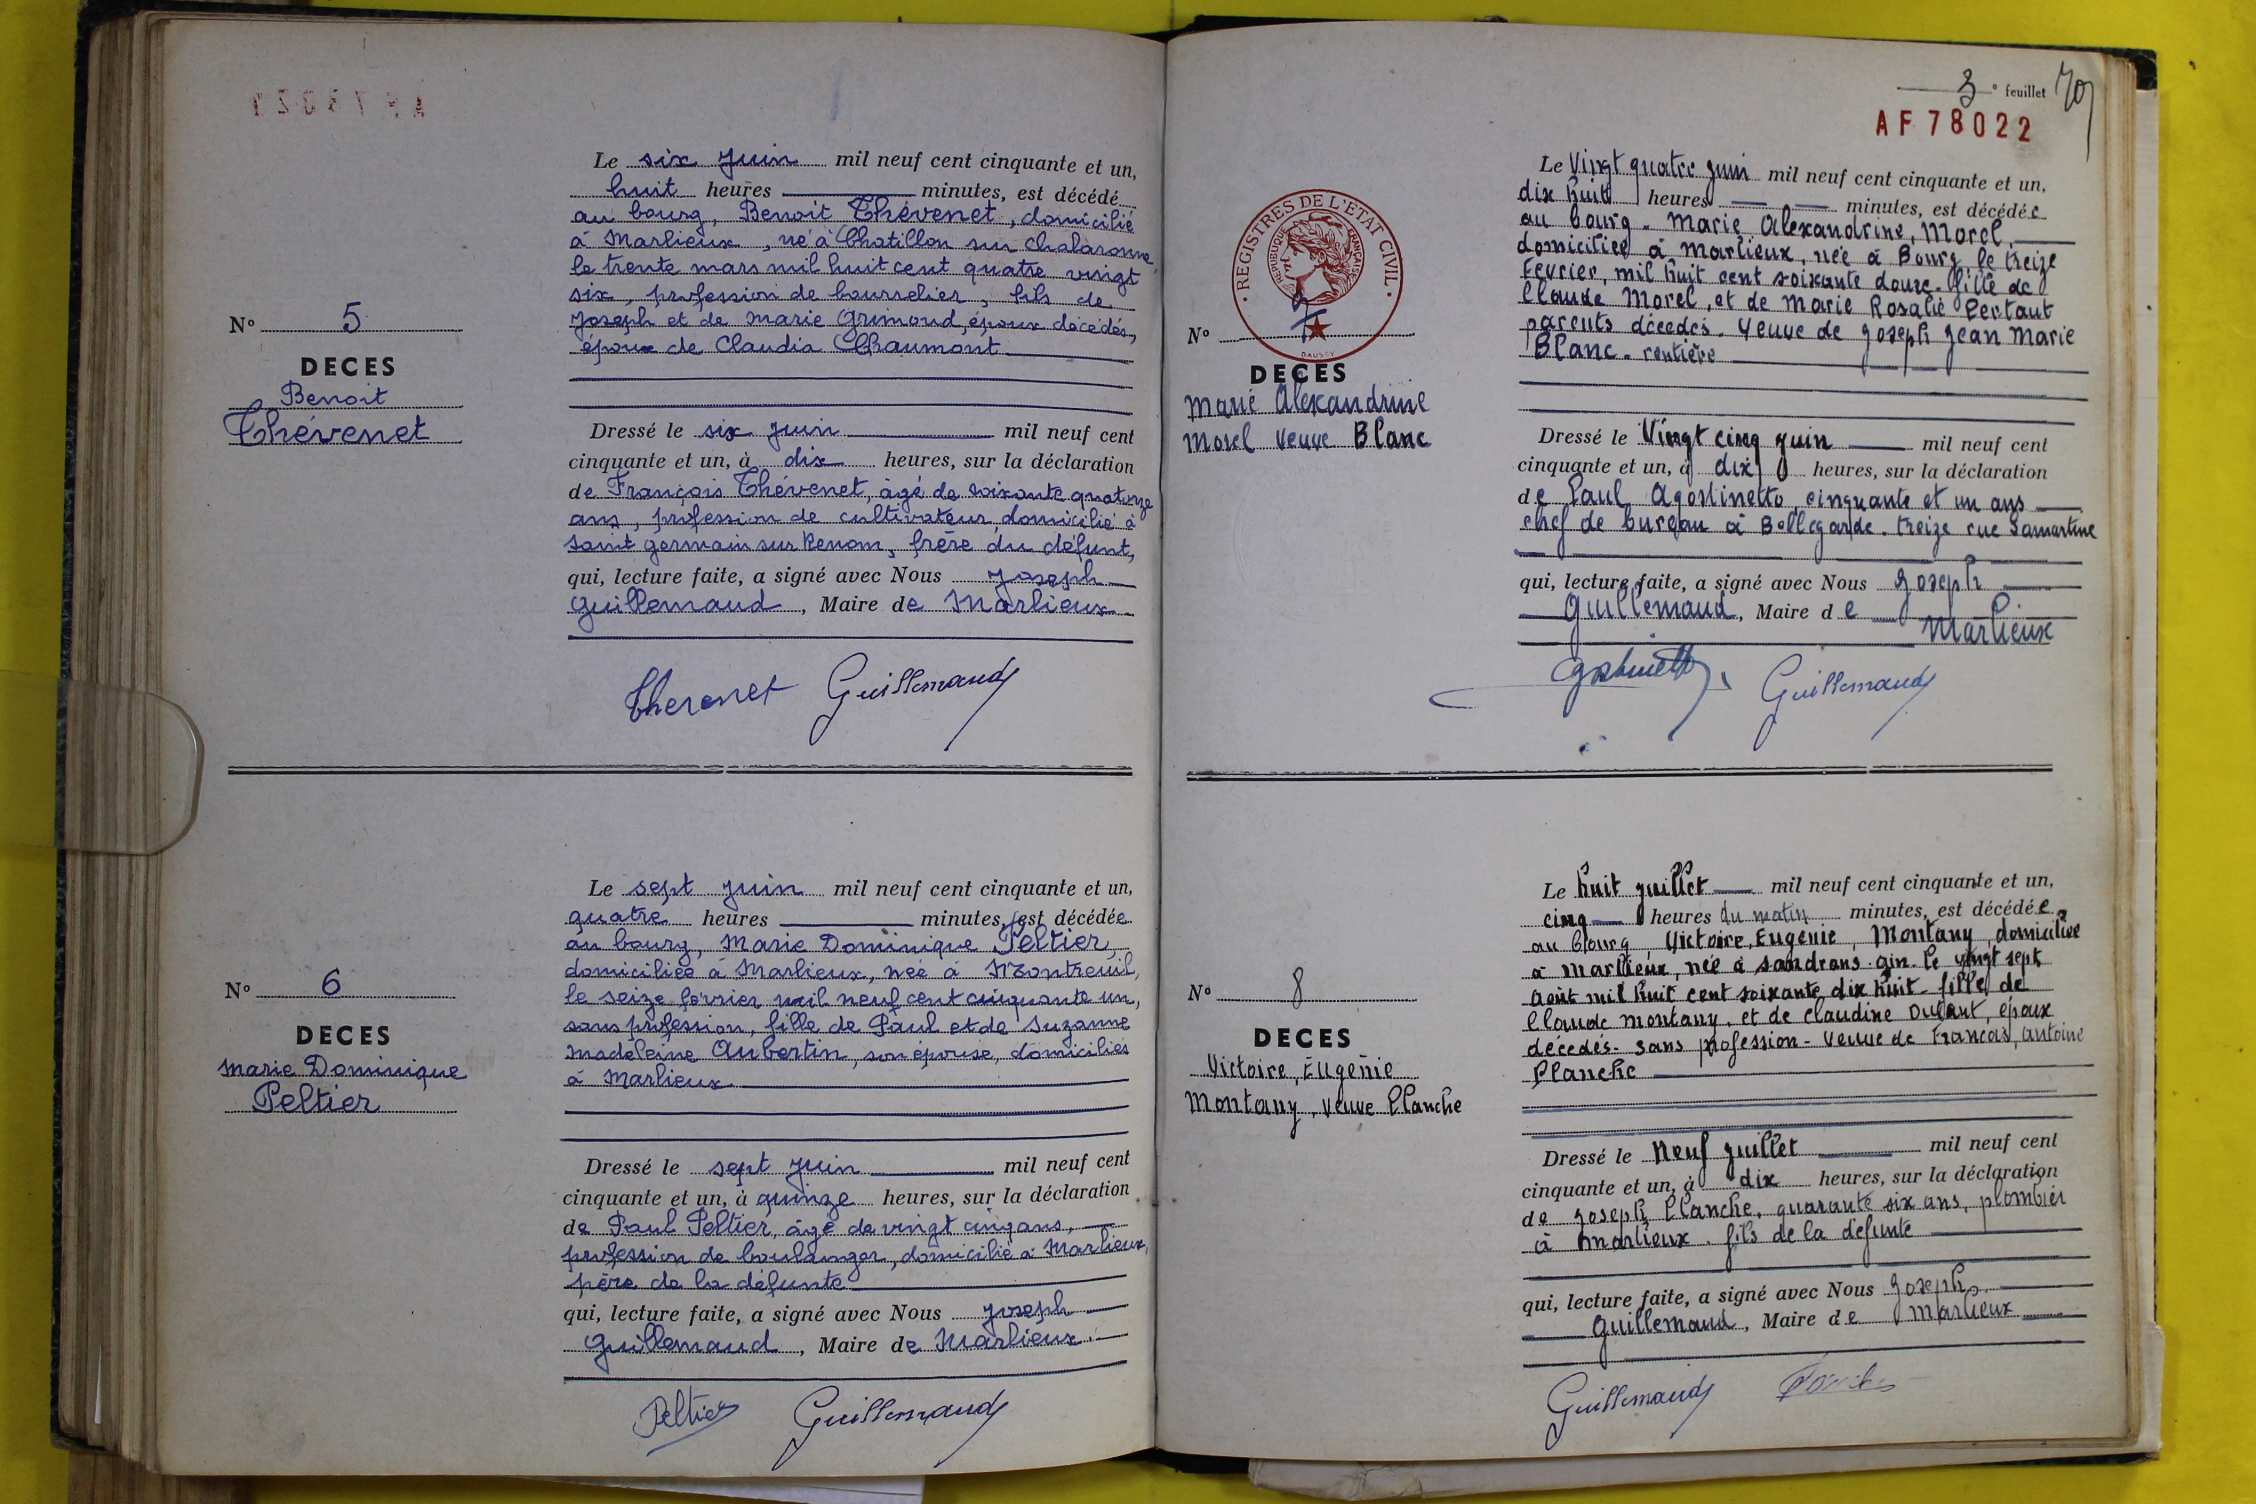 Le six juin mil neuf cent cinquante et un,
huit heures minutes, est décédé
au bourg, Benoit Thévenet, domicilié
à Marlieux, né à Chatillon sur Chalaronne
le trente mars mil huit cent quatre vingt
six, profession de bourrelier, fils de
Joseph et de Marie Grimond, époux décédés,
époux de Claudia Chaumont
N° 5
DECES
Benoit
Thévenet
Dressé le six juin mil neuf cent
cinquante et un, à dix heures, sur la déclaration
de François Thévenet, âgé de soixante quatorze
ans, profession de cultivateur, domicilié à
Saint Germain sur Renom, frère du défunt,
qui, lecture faite, a signé avec Nous Joseph
Guillemaud, Maire de Marlieux
Thevenet Guillemaud
Le sept juin mil neuf cent cinquante et un,
quatre heures minutes, est décédée
au bourg, Marie Dominique Peltier,
domiciliée à Marlieux, née à Montreuil,
le seize février mil neuf cent cinquante un,
sans profession, fille de Paul et de Suzanne
Madeleine Aubertin, son épouse, domiciliés
à Marlieux
N° 6
DECES
Marie Dominique
Peltier
Dressé le sept juin mil neuf cent
cinquante et un, à quinze heures, sur la déclaration
de Paul Peltier, âgé de vingt cinq ans,
profession de boulanger, domicilié à Marlieux,
père de la défunte
qui, lecture faite, a signé avec Nous Joseph
Guillemaud, Maire de Marlieux.
Peltier Guillemaud
3e feuillet 70
AF78022
Le Vingt quatre juin mil neuf cent cinquante et un,
dix huit heures minutes, est décédée
au bourg. Marie Alexandrine, Morel,
domiciliée à Marlieux, née à Bourg le treize
Fevrier, mil huit cent soixante douze. fille de
Claude Morel, et de Marie Rosalie Pertaut
parents décedés. Veuve de Joseph Jean Marie
Blanc. rentière
REGISTRES DE L'ETAT CIVIL
REPUBLIQUE FRANÇAISE
DAUSSY
N° 7
DECES
Marie Alexandrine
Morel Veuve Blanc
Dressé le Vingt cinq juin mil neuf cent
cinquante et un, à dix heures, sur la déclaration
de Paul Agostinetto, cinquante et un ans
chef de bureau à Bellegarde. treize rue Lamartine
qui, lecture faite, a signé avec Nous Joseph
Guillemaud, Maire de
Marlieux
Agostinetto Guillemaud
Le huit juillet mil neuf cent cinquante et un,
cinq heures du matin minutes, est décédée
au bourg Victoire, Eugénie, Montany, domiciliée
à Marlieux, née à Sandrans. Ain. le vingt sept
Août mil huit cent soixante dix huit. fille de
Claude Montany, et de Claudine Dutant, époux
décedés. sans profession - Veuve de Francois, Antoine
Planche
N° 8
DECES
Victoire, Eugénie
Montany, veuve Planche
Dressé le Neuf juillet mil neuf cent
cinquante et un, à dix heures, sur la déclaration
de Joseph Planche, quarante six ans, plombier
à Marlieux. fils de la défunte
qui, lecture faite, a signé avec Nous Joseph
Guillemaud, Maire de Marlieux
Guillemaud